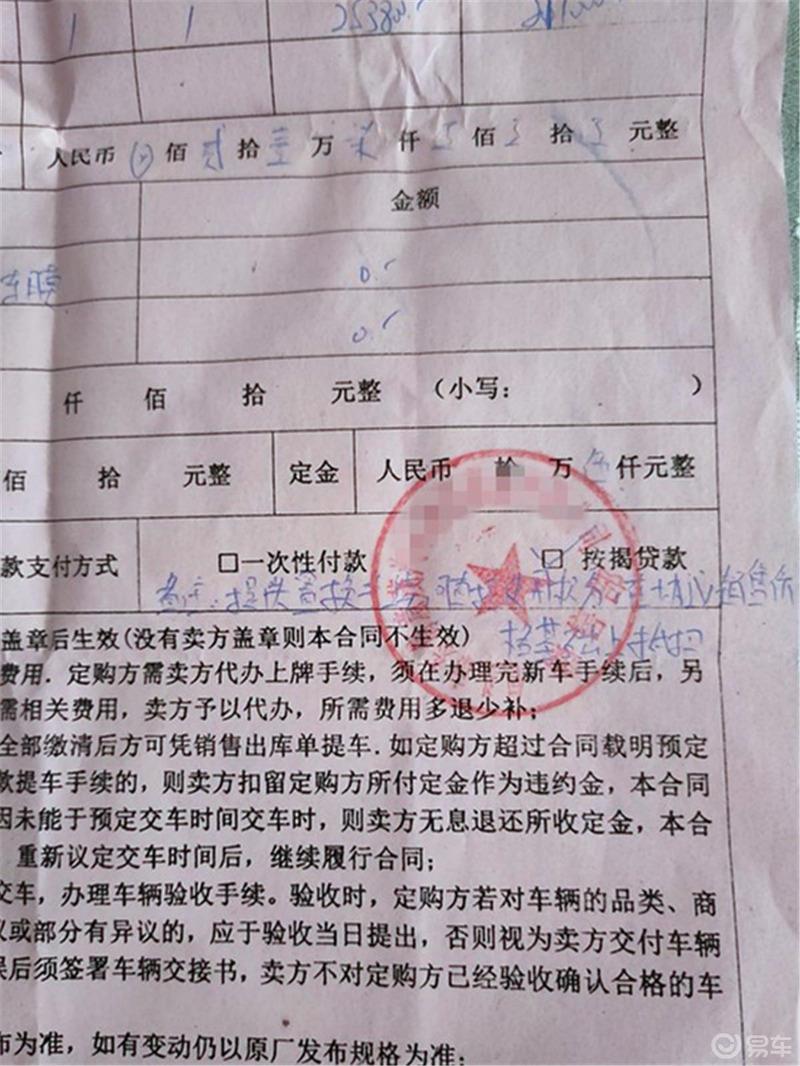 1 1 25380
人民币 佰 贰 拾 壹 万 柒 仟 佰 拾 元整
金额
车膜 0.
0.
仟 佰 拾 元整 (小写: )
佰 拾 元整 定金 人民币 拾 万 伍 仟元整
款支付方式 □一次性付款 □ 按揭贷款
备注:提供置换
盖章后生效(没有卖方盖章则本合同不生效)
费用. 定购方需卖方代办上牌手续, 须在办理完新车手续后, 另
需相关费用, 卖方予以代办, 所需费用多退少补;
全部缴清后方可凭销售出库单提车. 如定购方超过合同载明预定
提车手续的, 则卖方扣留定购方所付定金作为违约金, 本合同
因未能于预定交车时间交车时, 则卖方无息退还所收定金, 本合
重新议定交车时间后, 继续履行合同;
交车, 办理车辆验收手续。验收时, 定购方若对车辆的品类、商
或部分有异议的, 应于验收当日提出, 否则视为卖方交付车辆
后须签署车辆交接书, 卖方不对定购方已经验收确认合格的车
布为准, 如有变动仍以原厂发布规格为准;
易车